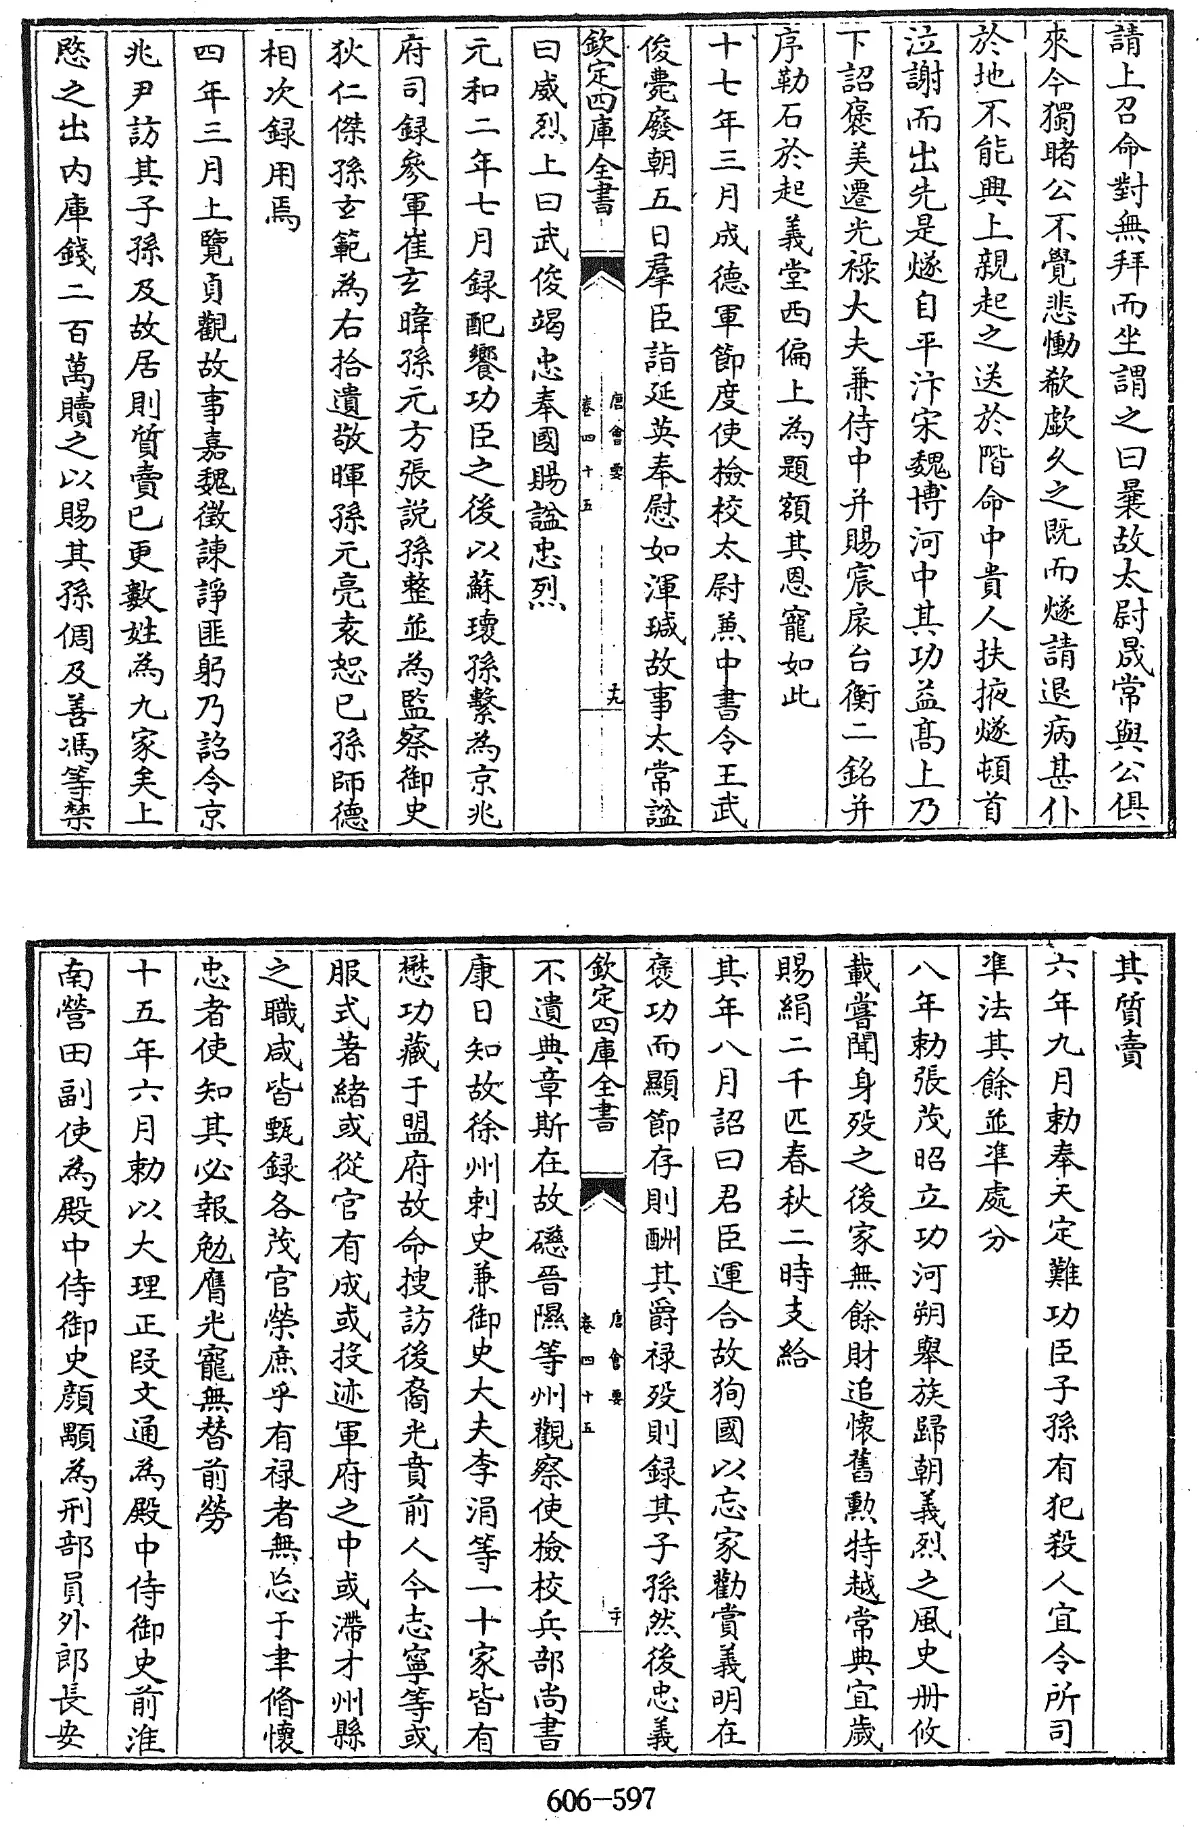 請上召命對無拜而坐謂之曰曩故太尉晟常與公俱
來今獨睹公不覺悲慟欷歔久之既而燧請退病甚仆
於地不能興上親起之送於階命中貴人扶掖燧頓首
泣謝而出先是燧自平汴宋魏博河中其功益髙上乃
下詔褒美遷光禄大夫兼侍中并賜宸扆台衡二銘并
序勒石於起義堂西偏上為題額其恩寵如此
十七年三月成德軍節度使檢校太尉兼中書令王武
俊薨廢朝五日羣臣詣延英奉慰如渾瑊故事太常謚
欽定四庫全書
唐會要
卷四十五
十九
曰威烈上曰武俊竭忠奉國賜諡忠烈
元和二年七月録配饗功臣之後以蘇瓌孫繫為京兆
府司録參軍崔玄暐孫元方張説孫整並為監察御史
狄仁傑孫玄範為右拾遺敬暉孫元亮袁恕已孫師德
相次録用焉
四年三月上覽貞觀故事嘉魏徵諫諍匪躬乃詔令京
兆尹訪其子孫及故居則質賣已更數姓為九家矣上
愍之出内庫錢二百萬贖之以賜其孫倜及善馮等禁
其質賣
六年九月勅奉天定難功臣子孫有犯殺人宜令所司
凖法其餘並凖處分
八年勅張茂昭立功河朔舉族歸朝義烈之風史册攸
載嘗聞身殁之後家無餘財追懷舊勲特越常典宜歲
賜絹二千匹春秋二時支給
其年八月詔曰君臣運合故狥國以忘家勸賞義明在
褒功而顯節存則酬其爵禄殁則録其子孫然後忠義
欽定四庫全書
唐會要
卷四十五
二十
不遺典章斯在故磁晉隰等州觀察使檢校兵部尚書
康日知故徐州刺史兼御史大夫李涓等一十家皆有
懋功藏于盟府故命搜訪後裔光賁前人今志寧等或
服式著緒或從官有成或投迹軍府之中或滯才州縣
之職咸皆甄録各茂官榮庶乎有禄者無忘于聿脩懷
忠者使知其必報勉膺光寵無替前勞
十五年六月勅以大理正段文通為殿中侍御史前淮
南營田副使為殿中侍御史顔顒為刑部員外郎長安
606-597